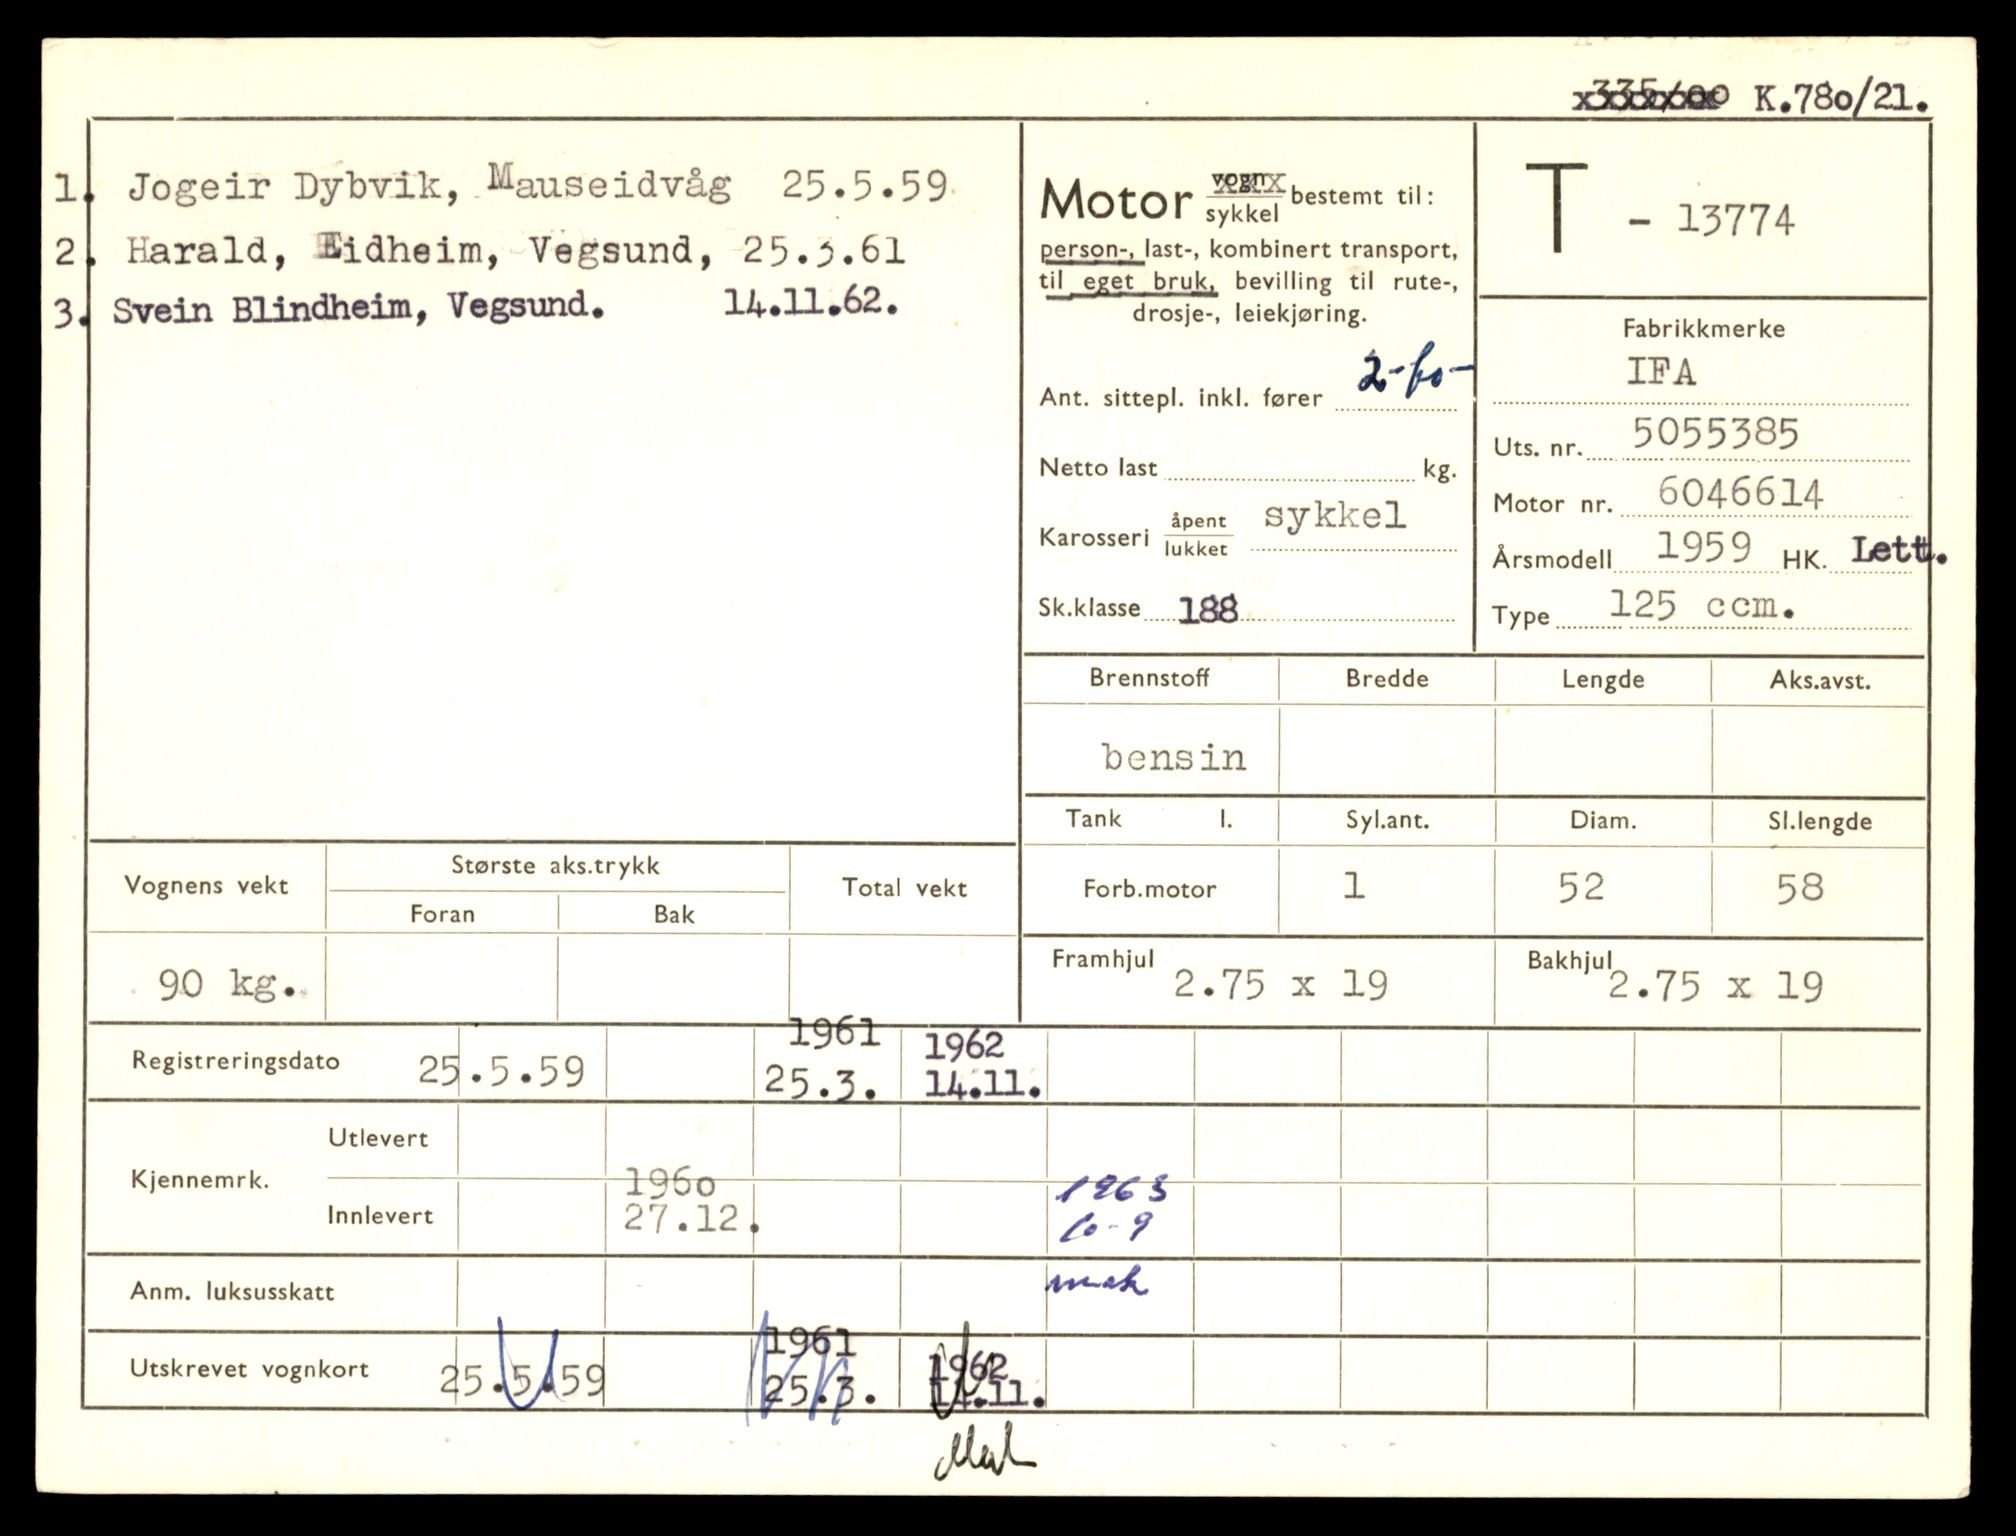 K.780/21.
1. Jogeir Dybvik, Mauseidvåg 25.5.59
2. Harald, Eidheim, Vegsund, 25.3.61
3. Svein Blindheim, Vegsund. 14.11.62.
Motor vogn/sykkel bestemt til:
person-, last-, kombinert transport,
til eget bruk, bevilling til rute-,
drosje-, leiekjøring.
Ant. sittepl. inkl. fører 2
Netto last kg.
Karosseri åpent/lukket sykkel
Sk.klasse 188
T - 13774
Fabrikkmerke
IFA
Uts. nr. 5055385
Motor nr. 6046614
Årsmodell 1959 HK. Lett.
Type 125 ccm.
Brennstoff Bredde Lengde Aks.avst.
bensin
Tank l. Syl.ant. Diam. Sl.lengde
Forb.motor 1 52 58
Framhjul 2.75 x 19 Bakhjul 2.75 x 19
Vognens vekt Største aks.trykk Total vekt
Foran Bak
90 kg.
1961 1962
Registreringsdato 25.5.59 25.3. 14.11.
Utlevert
Kjennemrk. 1960 1963
Innlevert 27.12.
Anm. luksusskatt
1961 1962
Utskrevet vognkort 25.5.59 25.3. 14.11.